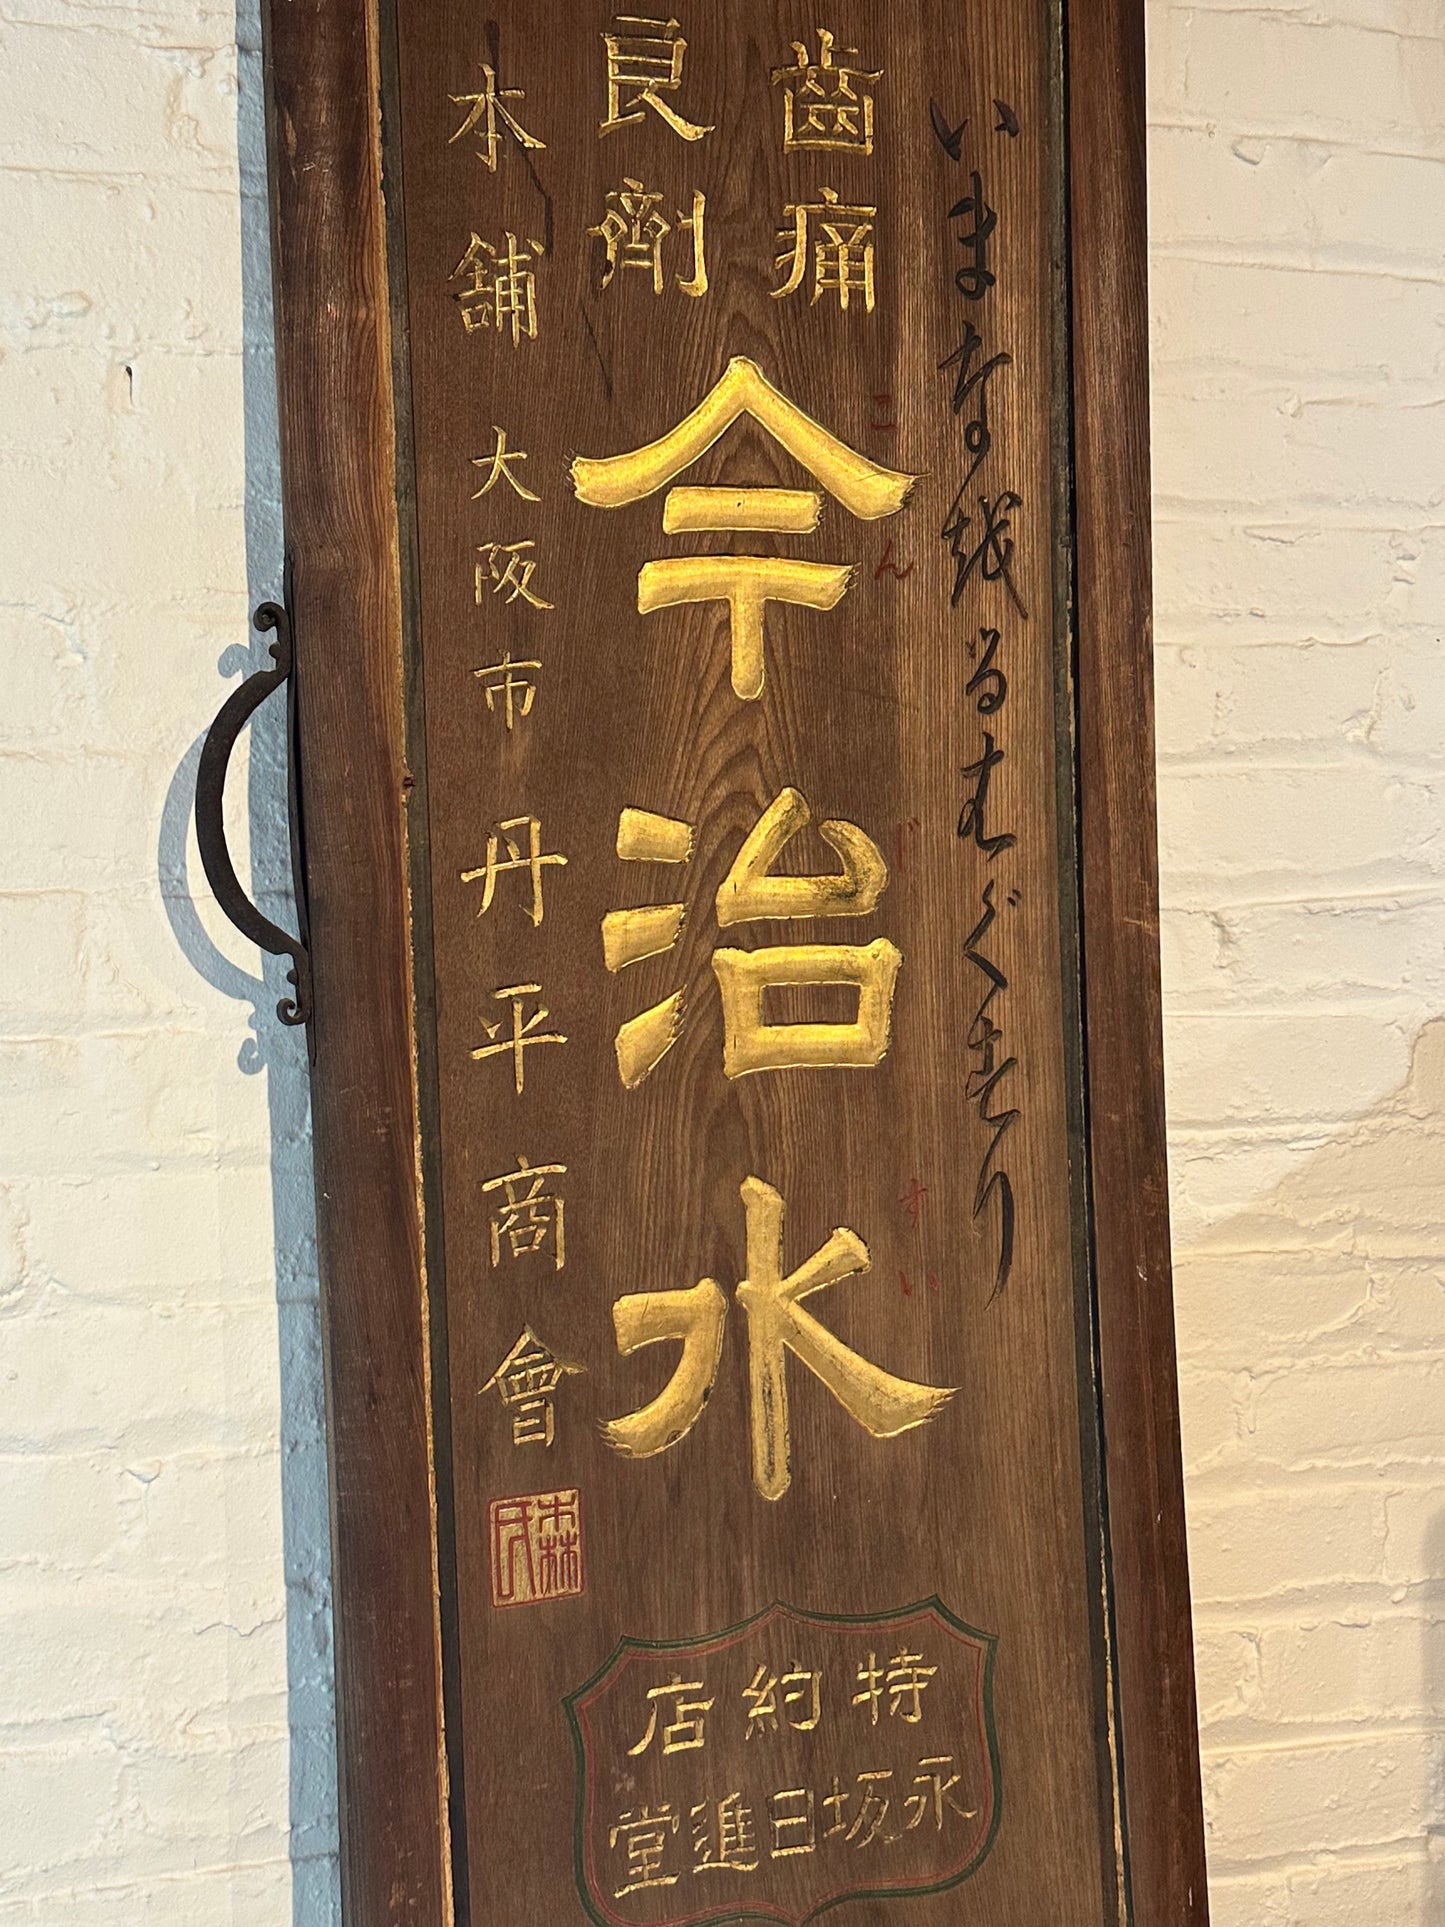 いまなをるはぐすり
齒痛
良劑
こんじすい
今治水
本舗 大阪市 丹平商會
森氏
特約店
永坂日進堂